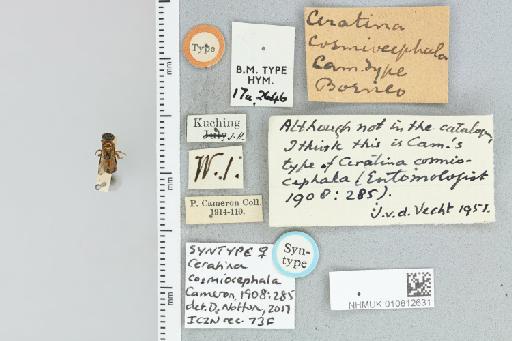 Type
B.M. TYPE
HYM.
17a 2646
Ceratina
cosmiocephala
Cam. type
Borneo
Kuching
J.H.
W.1:
P. Cameron Coll.
1914-110.
Although not in the catalogue,
I think this is Cam.'s
type of Ceratina cosmio-
cephala (Entomologist
1908: 285).
J.v.d. Vecht 1951.
SYNTYPE ♀
Ceratina
cosmiocephala
Cameron, 1908:285
det. D. Notton, 2017
ICZN rec. 73F
Syn-
type
NHMUK 010812631